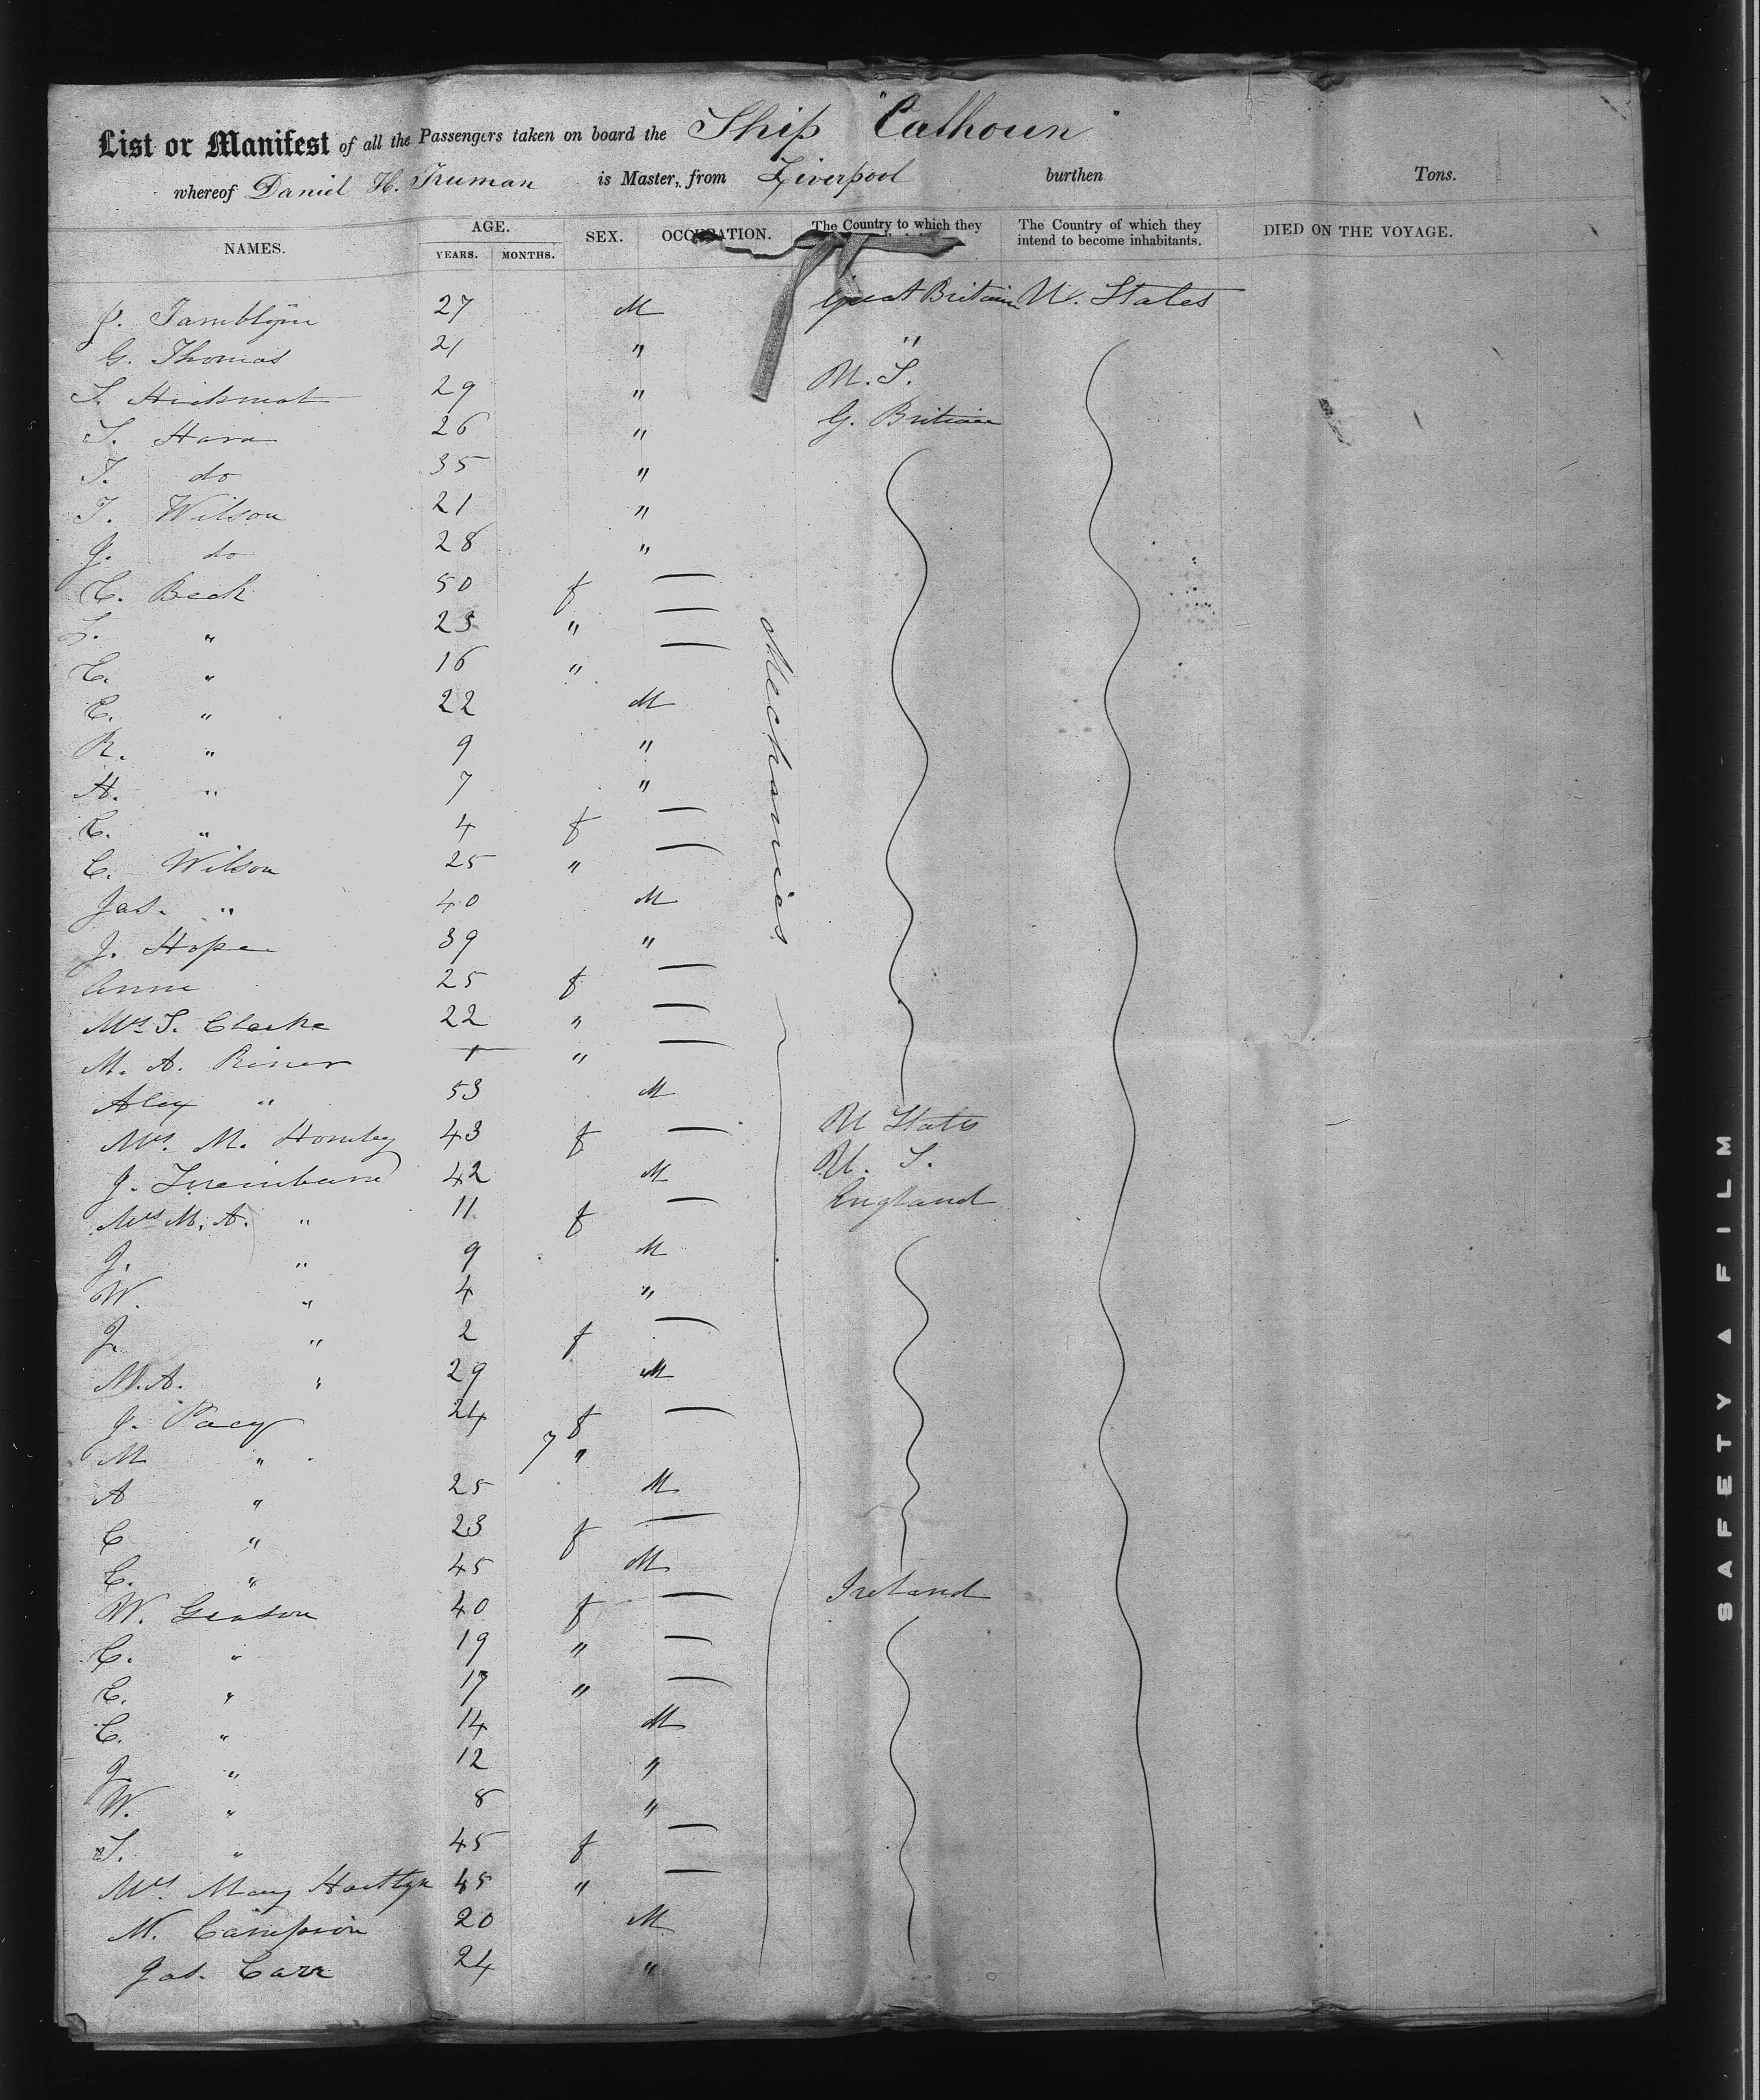 List or Manifest of all the Passengers taken on board the Ship "Calhoun"
whereof Daniel H. Truman is Master, from Liverpool burthen Tons.
NAMES. AGE. YEARS. MONTHS. SEX. OCCUPATION. The Country to which they The Country of which they intend to become inhabitants. DIED ON THE VOYAGE.
J. Tamblyn 27 M Great Britain U. States
G. Thomas 21 " "
S. 29 " U. S.
S. Hara 26 " G. Britain
T. do 35 "
T. Wilson 21 "
J. do 28 "
C. Beck 50 f —
L. " 23 " —
C. " 16 " —
C. " 22 M
R. " 9 "
H. " 7 "
C. " 4 f —
C. Wilson 25 " —
Jas. " 40 M
Mechanics
J. Hope 39 "
Anne 25 f —
Mrs. S. Clarke 22 " —
M. A. 1 " —
Alex " 53 M
Mrs. M. Hornby 43 f — U States
J. 42 M U. S.
Mrs M. A. " 11 f — England
J. " 9 M
W. " 4 "
J. " 2 f —
M. A. " 29 M
J. Pacy 24 f —
M " 7 "
A " 25 M
C " 23 f —
C. " 45 M
W. 40 f — Ireland
C. " 19 " —
C. " 17 " —
C. " 14 M
J. " 12 "
W. " 8 "
S. " 45 f —
Mrs. Mary 45 " —
M. Campion 20 M
Jas. Carr 24 "
SAFETY ▲ FILM